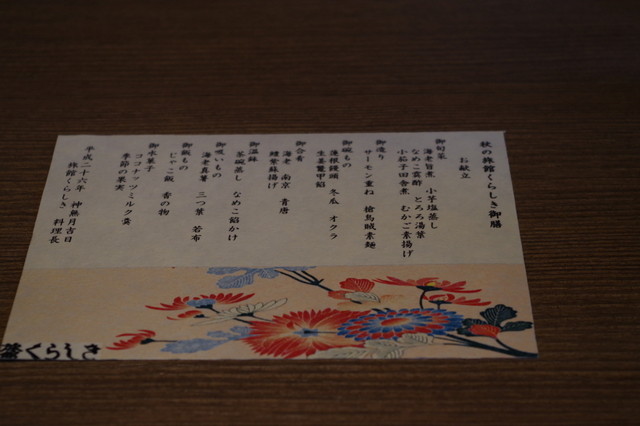 秋の旅館くらしき御膳
お献立
御旬菜
海老旨煮 小芋塩蒸し
なめこ霙酢 とろろ湯葉
小茄子田舎煮 むかご素揚げ
御造り
サーモン重ね 槍烏賊素麺
御碗もの
蓮根饅頭 冬瓜 オクラ
生姜鼈甲餡
御合肴
海老 南京 青唐
鰆紫蘇揚げ
御温椀
茶碗蒸し なめこ餡かけ
御吸いもの
海老真薯 三つ葉 若布
御飯もの
じゃこ飯 香の物
御水菓子
ココナッツミルク羹
季節の果実
平成二十六年 神無月吉日
旅館くらしき 料理長
くらしき